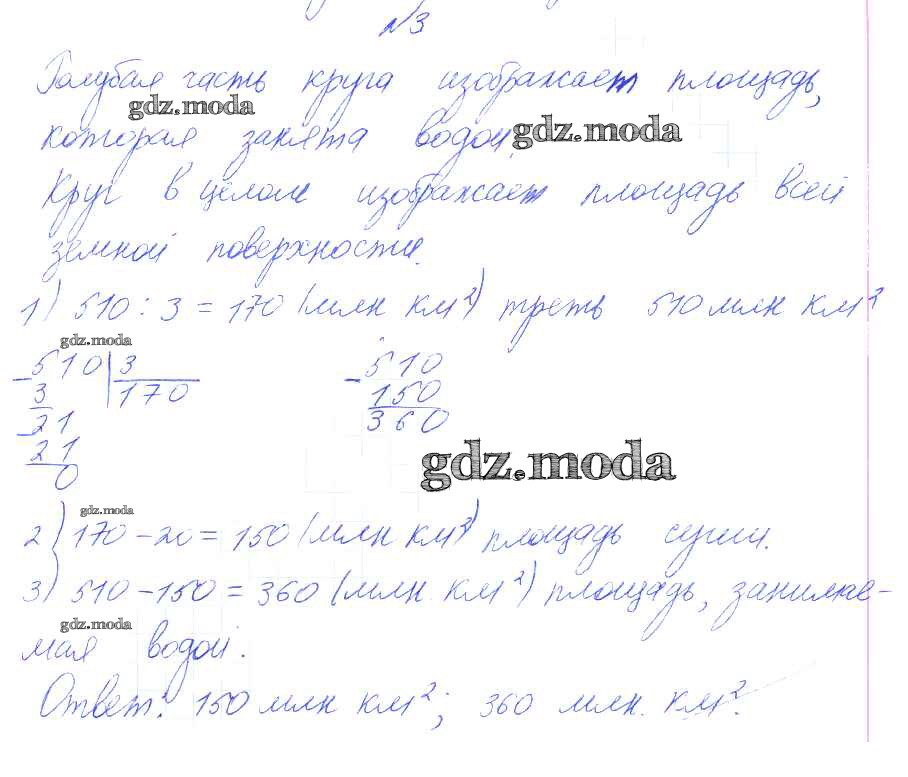 №3
Голубая часть круга изображает площадь,
gdz.moda
которая занята водой.
gdz.moda
Круг в целом изображает площадь всей
земной поверхности.
1) 510 : 3 = 170 (млн км²) треть 510 млн км²
gdz.moda
510 | 3
3 | 170
21
21
0
- 510
150
360
gdz.moda
gdz.moda
2) 170 - 20 = 150 (млн км²) площадь суши.
3) 510 - 150 = 360 (млн. км²) площадь, занимае-
gdz.moda
мая водой.
Ответ: 150 млн км²; 360 млн. км².